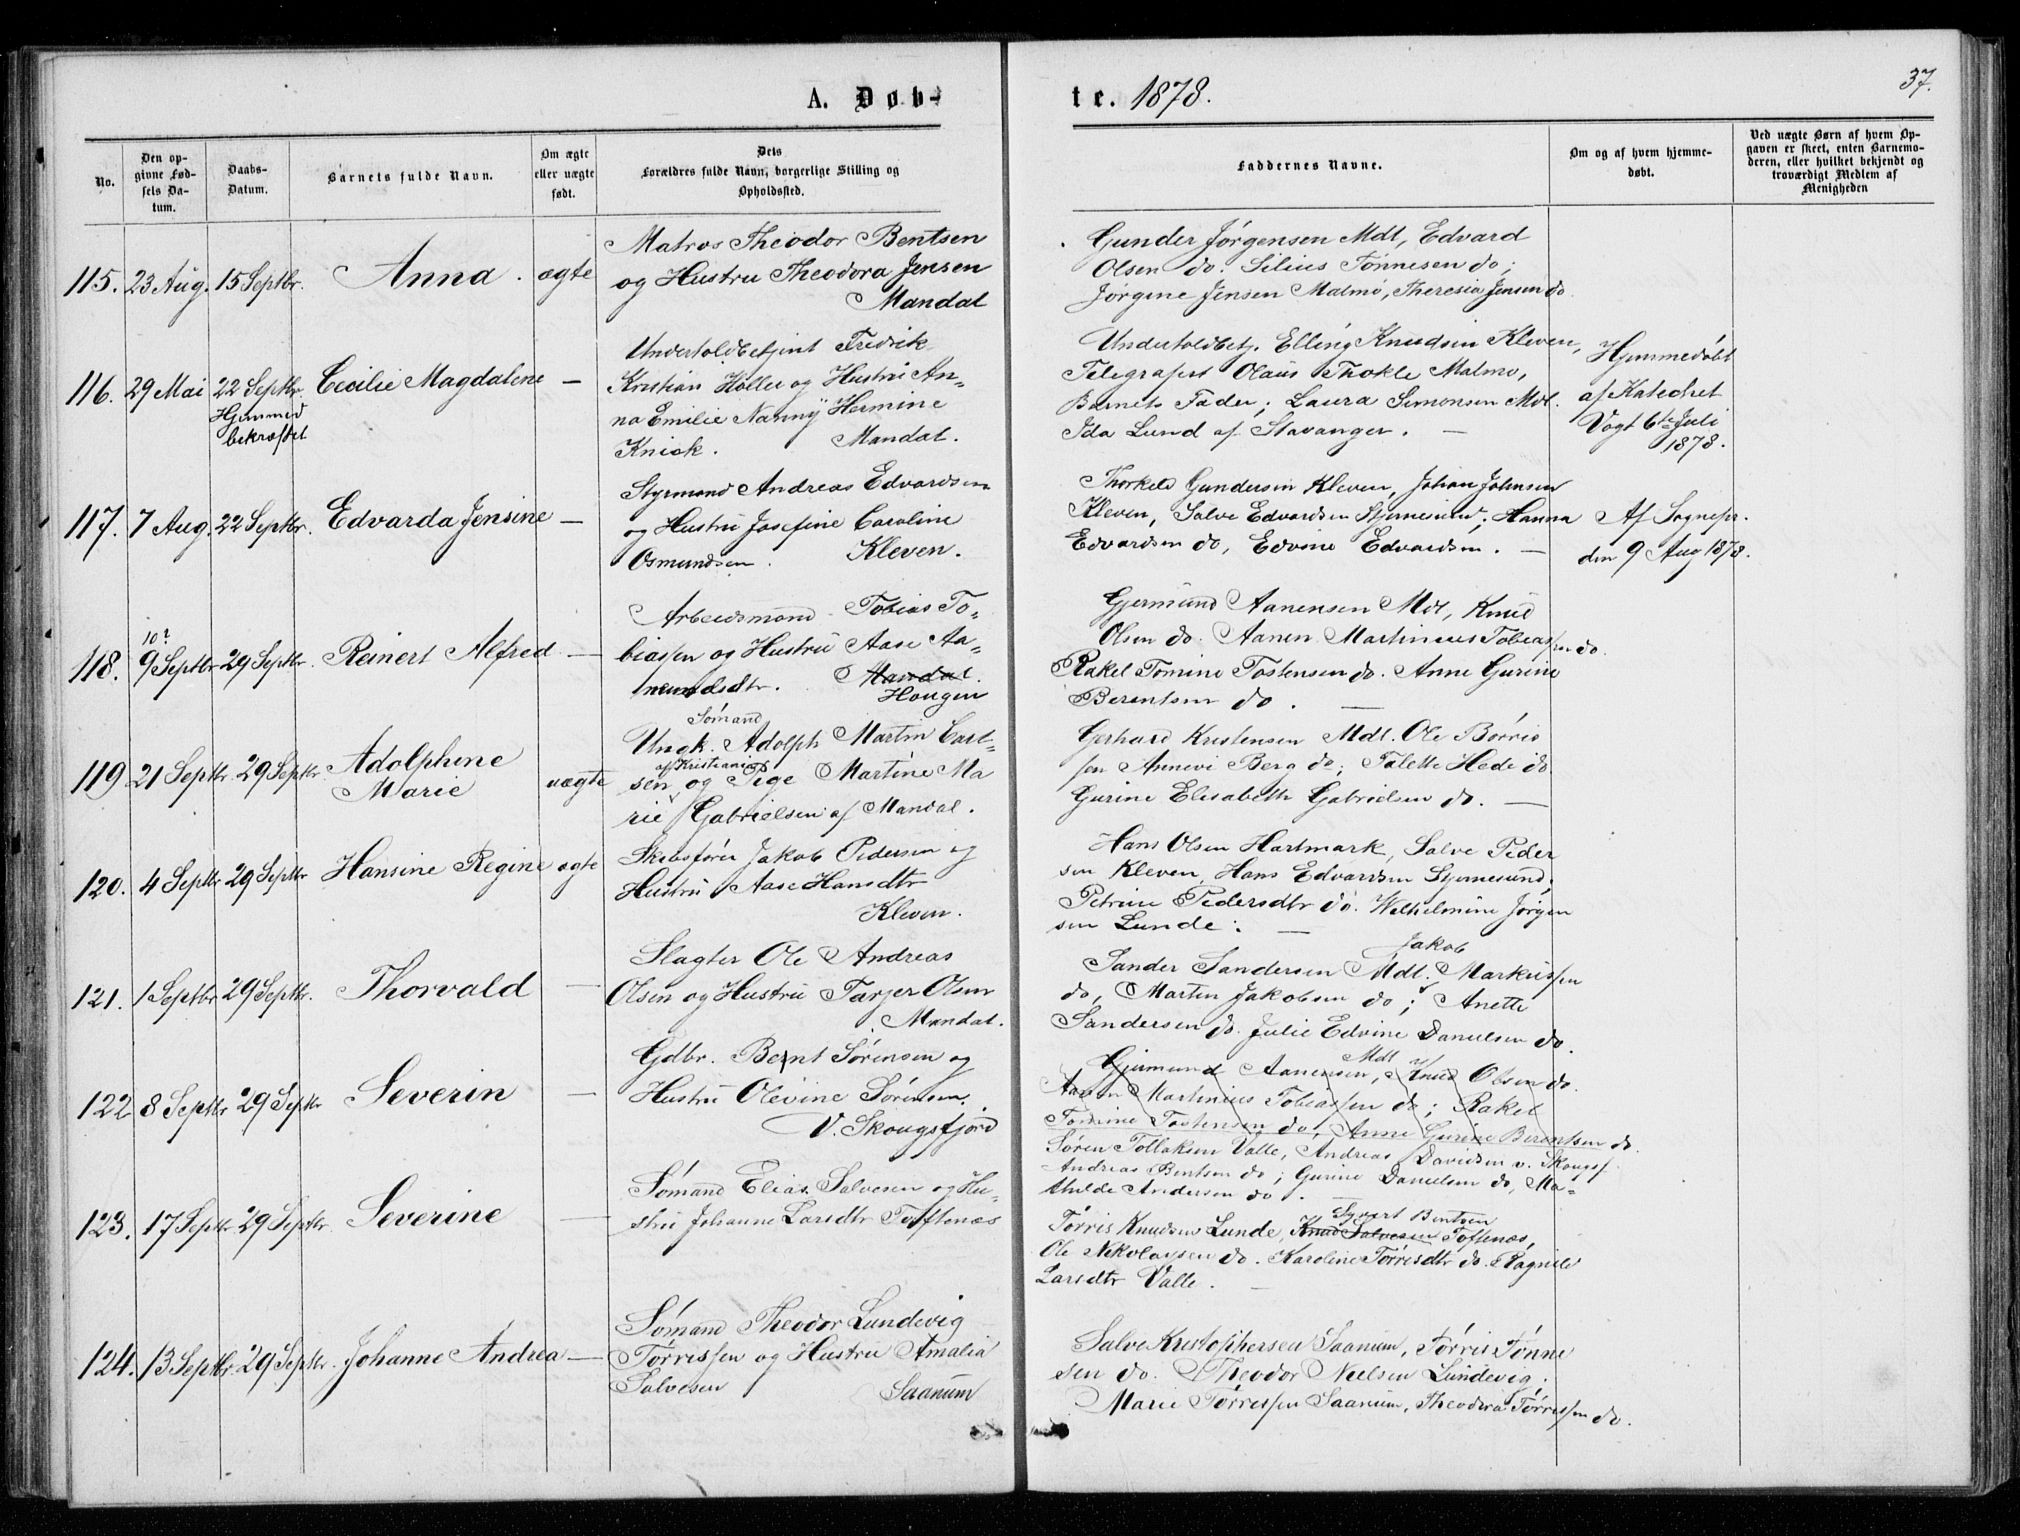 A. Døb-
te. 1878.
37.
No.
Den op-
givne Fød-
sels Da-
tum.
Daabs-
Datum.
Barnets fulde Navn.
Om ægte
eller uægte
født.
Dets
Forældres fulde Navn, borgerlige Stilling og
Opholdssted.
Faddernes Navne.
Om og af hvem hjemme-
døbt.
Ved uægte Børn af hvem Op-
gaven er skeet, enten Barnemo-
deren, eller hvilket bekjendt og
troværdigt Medlem af
Menigheden
115. 23 Aug. 15 Septbr. Anna. ægte
Matros Theodor Bentsen
og Hustru Theodora Jensen
Mandal
Gunder Jörgensen Mdl, Edvard
Olsen do. Silius Tönnesen do;
Jörgine Jensen Malmö, Theresia Jensen do.
116. 29 Mai 22 Septbr. Cecilie Magdalene —
Hjemmed
bekræftet
Undertoldbetjent Fredrik
Kristian Holler og Hustru An-
na Emilie Nanny Hermine
Kniok. Mandal.
Undertoldbetj. Elling Knudsen Kleven,
Telegrafist Olaus Thokle Malmö,
Barnets Fader; Laura Simonsen Mdl.
Ida Lund af Stavanger. —
Hjemmedöbt
af Katechet
Vogt 6te Juli
1878.
117. 7 Aug. 22 Septbr. Edvarda Jensine —
Styrmand Andreas Edvardsen
og Hustru Josefine Caroline
Osmundsen. Kleven.
Thorkeld Gundersen Kleven, Johan Johnsen
Kleven, Salve Edvardsen Stjernesund; Hanna
Edvardsen do, Edvine Edvardsen. —
Af Sognepr.
den 9 Aug 1878.
10?
118. 9 Septbr 29 Septbr. Reinert Alfred —
Arbeidsmand Tobias To-
biassen og Hustru Aase Aa-
nundsdtr. Mandal.
Hougen
Gjermund Aanensen Mdl, Knud
Olsen do. Aanen Martinius Tobiassen do.
Rakel Tomine Tostensen do. Anne Gurine
Berentsen do. —
119 21 Septbr. 29 Septbr. Adolphine
Marie uægte
Sömand
Ungk. Adolph Martin Carl-
af Kristiania
sen, og Pige Martine Ma
rie Gabrielsen af Mandal.
Gerhard Kristensen Mdl. Ole Börris
sen Annevi Berg do; Talette Hede do
Gurine Elisabeth Gabrielsen do. —
120. 4 Septbr 29 Septbr Hansine Regine ægte
Skibsförer Jakob Pedersen og
Hustru Aase Hansdtr
Kleven.
Hans Olsen Hartmark, Salve Peder
sen Kleven, Hans Edvardsen Stjernesund;
Petrine Pedersdtr do. Wilhelmine Jörgen
sen Lunde. —
121. 1 Septbr 29 Septbr. Thorvald —
Slagter Ole Andreas
Olsen og Hustru Tarjer Olsen
Mandal.
Jakob
Sander Sandersen Mdl. Markussen
do, Martin Jakobsen do; Anette
Sandersen do. Julie Edvine Danielsen do.
122 8 Septbr 29 Septbr Severin —
Gdbr. Bernt Sörensen og
Hustru Olevine Sörensen.
V. Skougsfjord
Mdl
Gjermund Aanensen, Knud Olsen do.
Aanen Martinius Tobiassen do; Rakel
Tomine Tostensen do, Anne Gurine Berentsen do
Sören Tollaksen Valle, Andreas Davidsen v. Skougsf.
Andreas Bentsen do; Gurine Danielsen do, Ma-
thilde Andersen do. —
123. 17 Septbr 29 Septbr. Severine —
Sömand Elias Salvesen og Hu-
stru Johanne Larsdtr Toftenæs
Syvert Bentsen
Törris Knudsen Lunde, Knud Salvesen Toftenæs,
Ole Nikolaysen do. Karoline Törrisdtr do. Ragnild
Larsdtr Valle. —
124. 13 Septbr. 29 Septbr. Johanne Andrea —
Sömand Theodor Lundevig
Törrissen og Hustru Amalia
Salvesen Saanum
Salve Kristophersen Saanum, Törris Tönne
sen do. Theodor Nielsen Lundevig.
Marie Törrissen Saanum, Theodora Törrissen do.